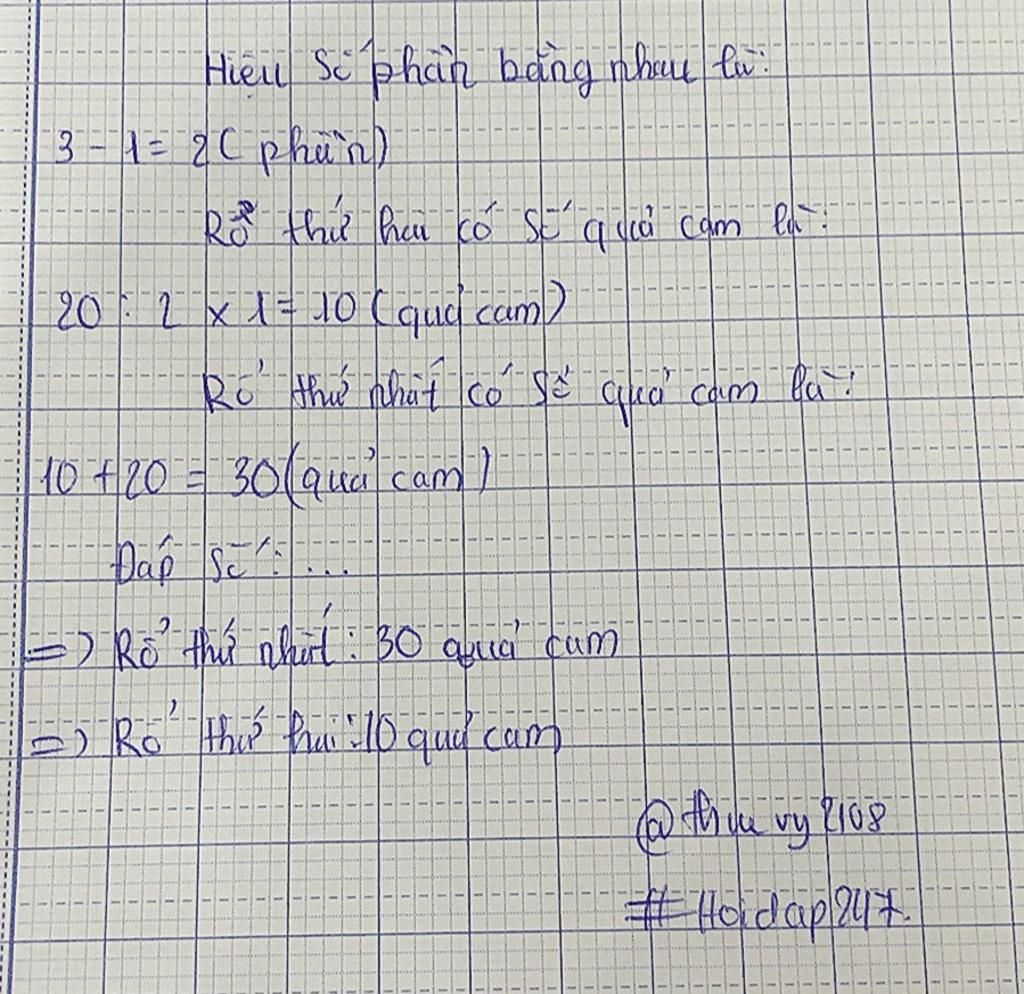 Hiệu số phần bằng nhau là:
3 - 1 = 2 ( phần)
Rổ thứ hai có số quả cam là:
20 : 2 x 1 = 10 (quả cam)
Rổ thứ nhất có số quả cam là:
10 + 20 = 30 (quả cam)
Đáp số: ...
=> Rổ thứ nhất: 30 quả cam
=> Rổ thứ hai: 10 quả cam
@thuvy2108
#Hoidap247.